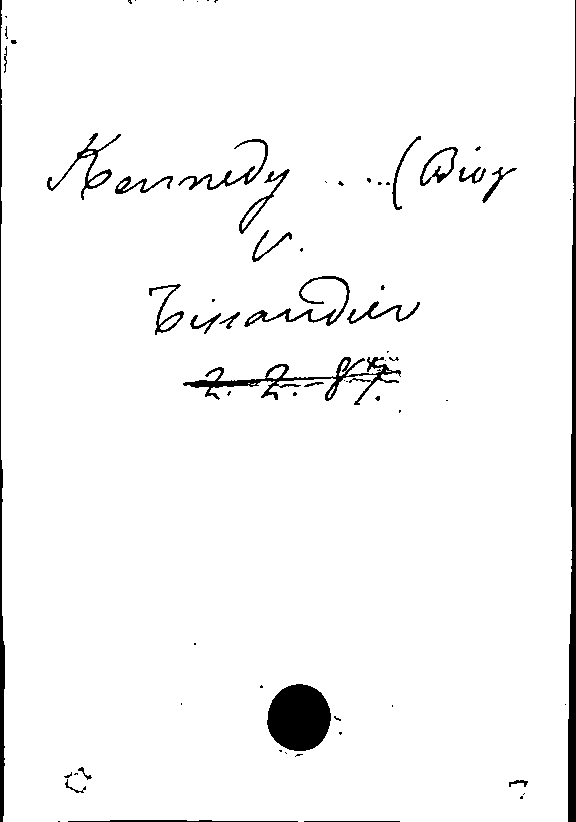 Kennedy ... (Biog
v.
Tissandier
2. 2. 87.